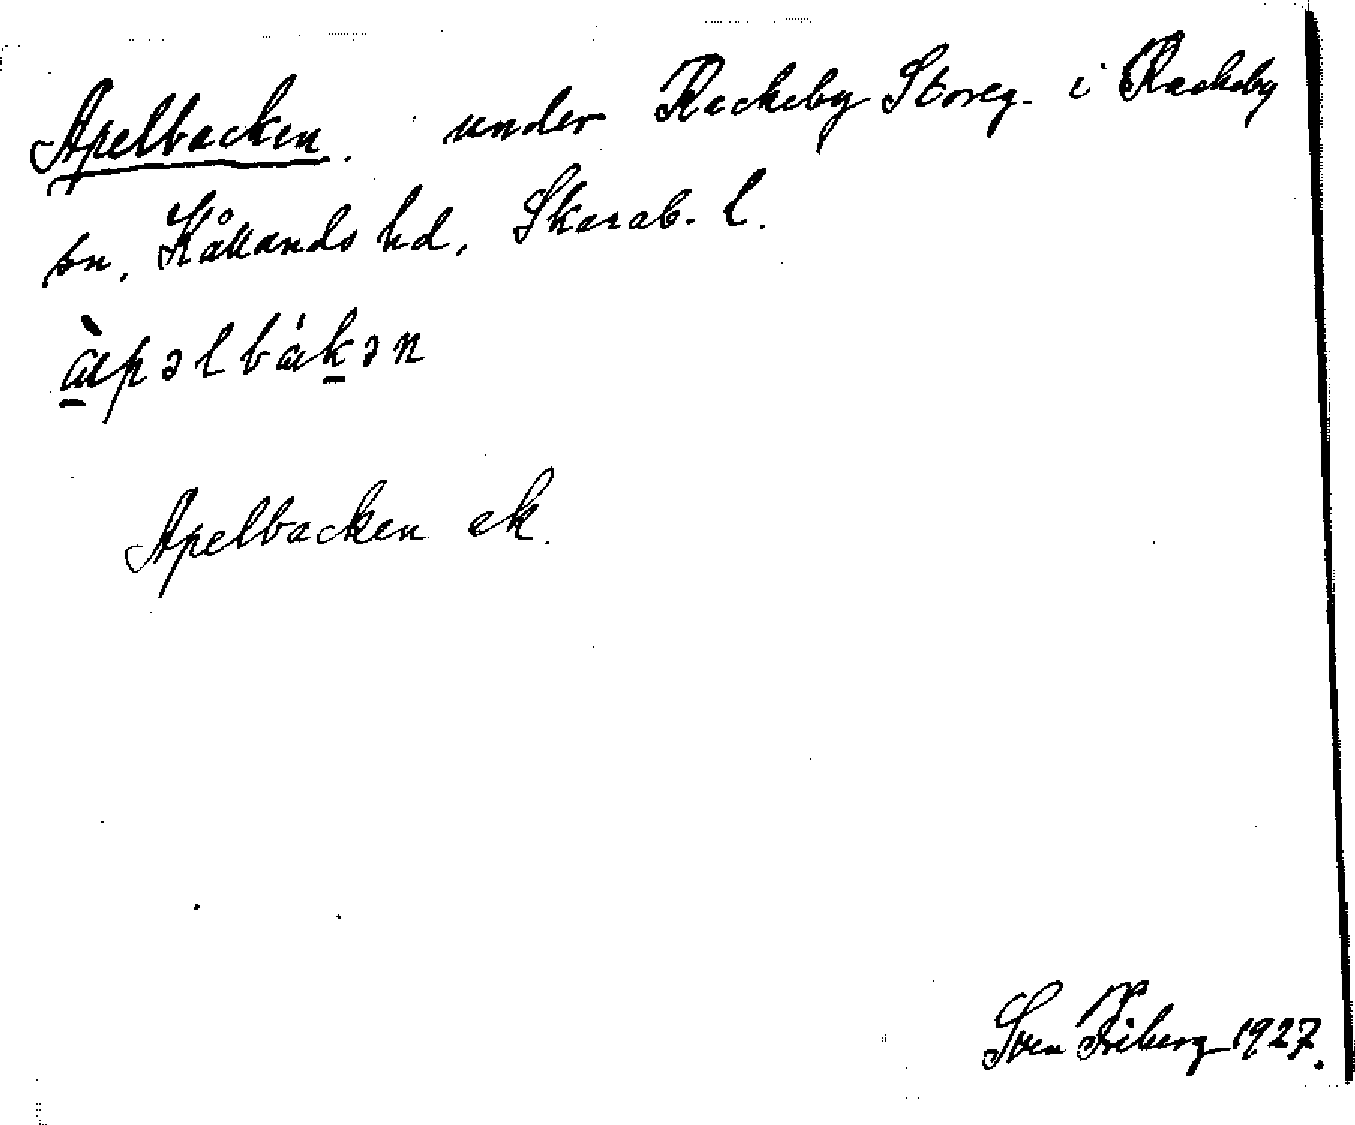 Apelbacken. under Rackeby Storeg. i Rackeby
sn. Kållands hd, Skarab. l.
à̱pəlbák̠ən
Apelbacken ek.
Sven Friberg 1927.